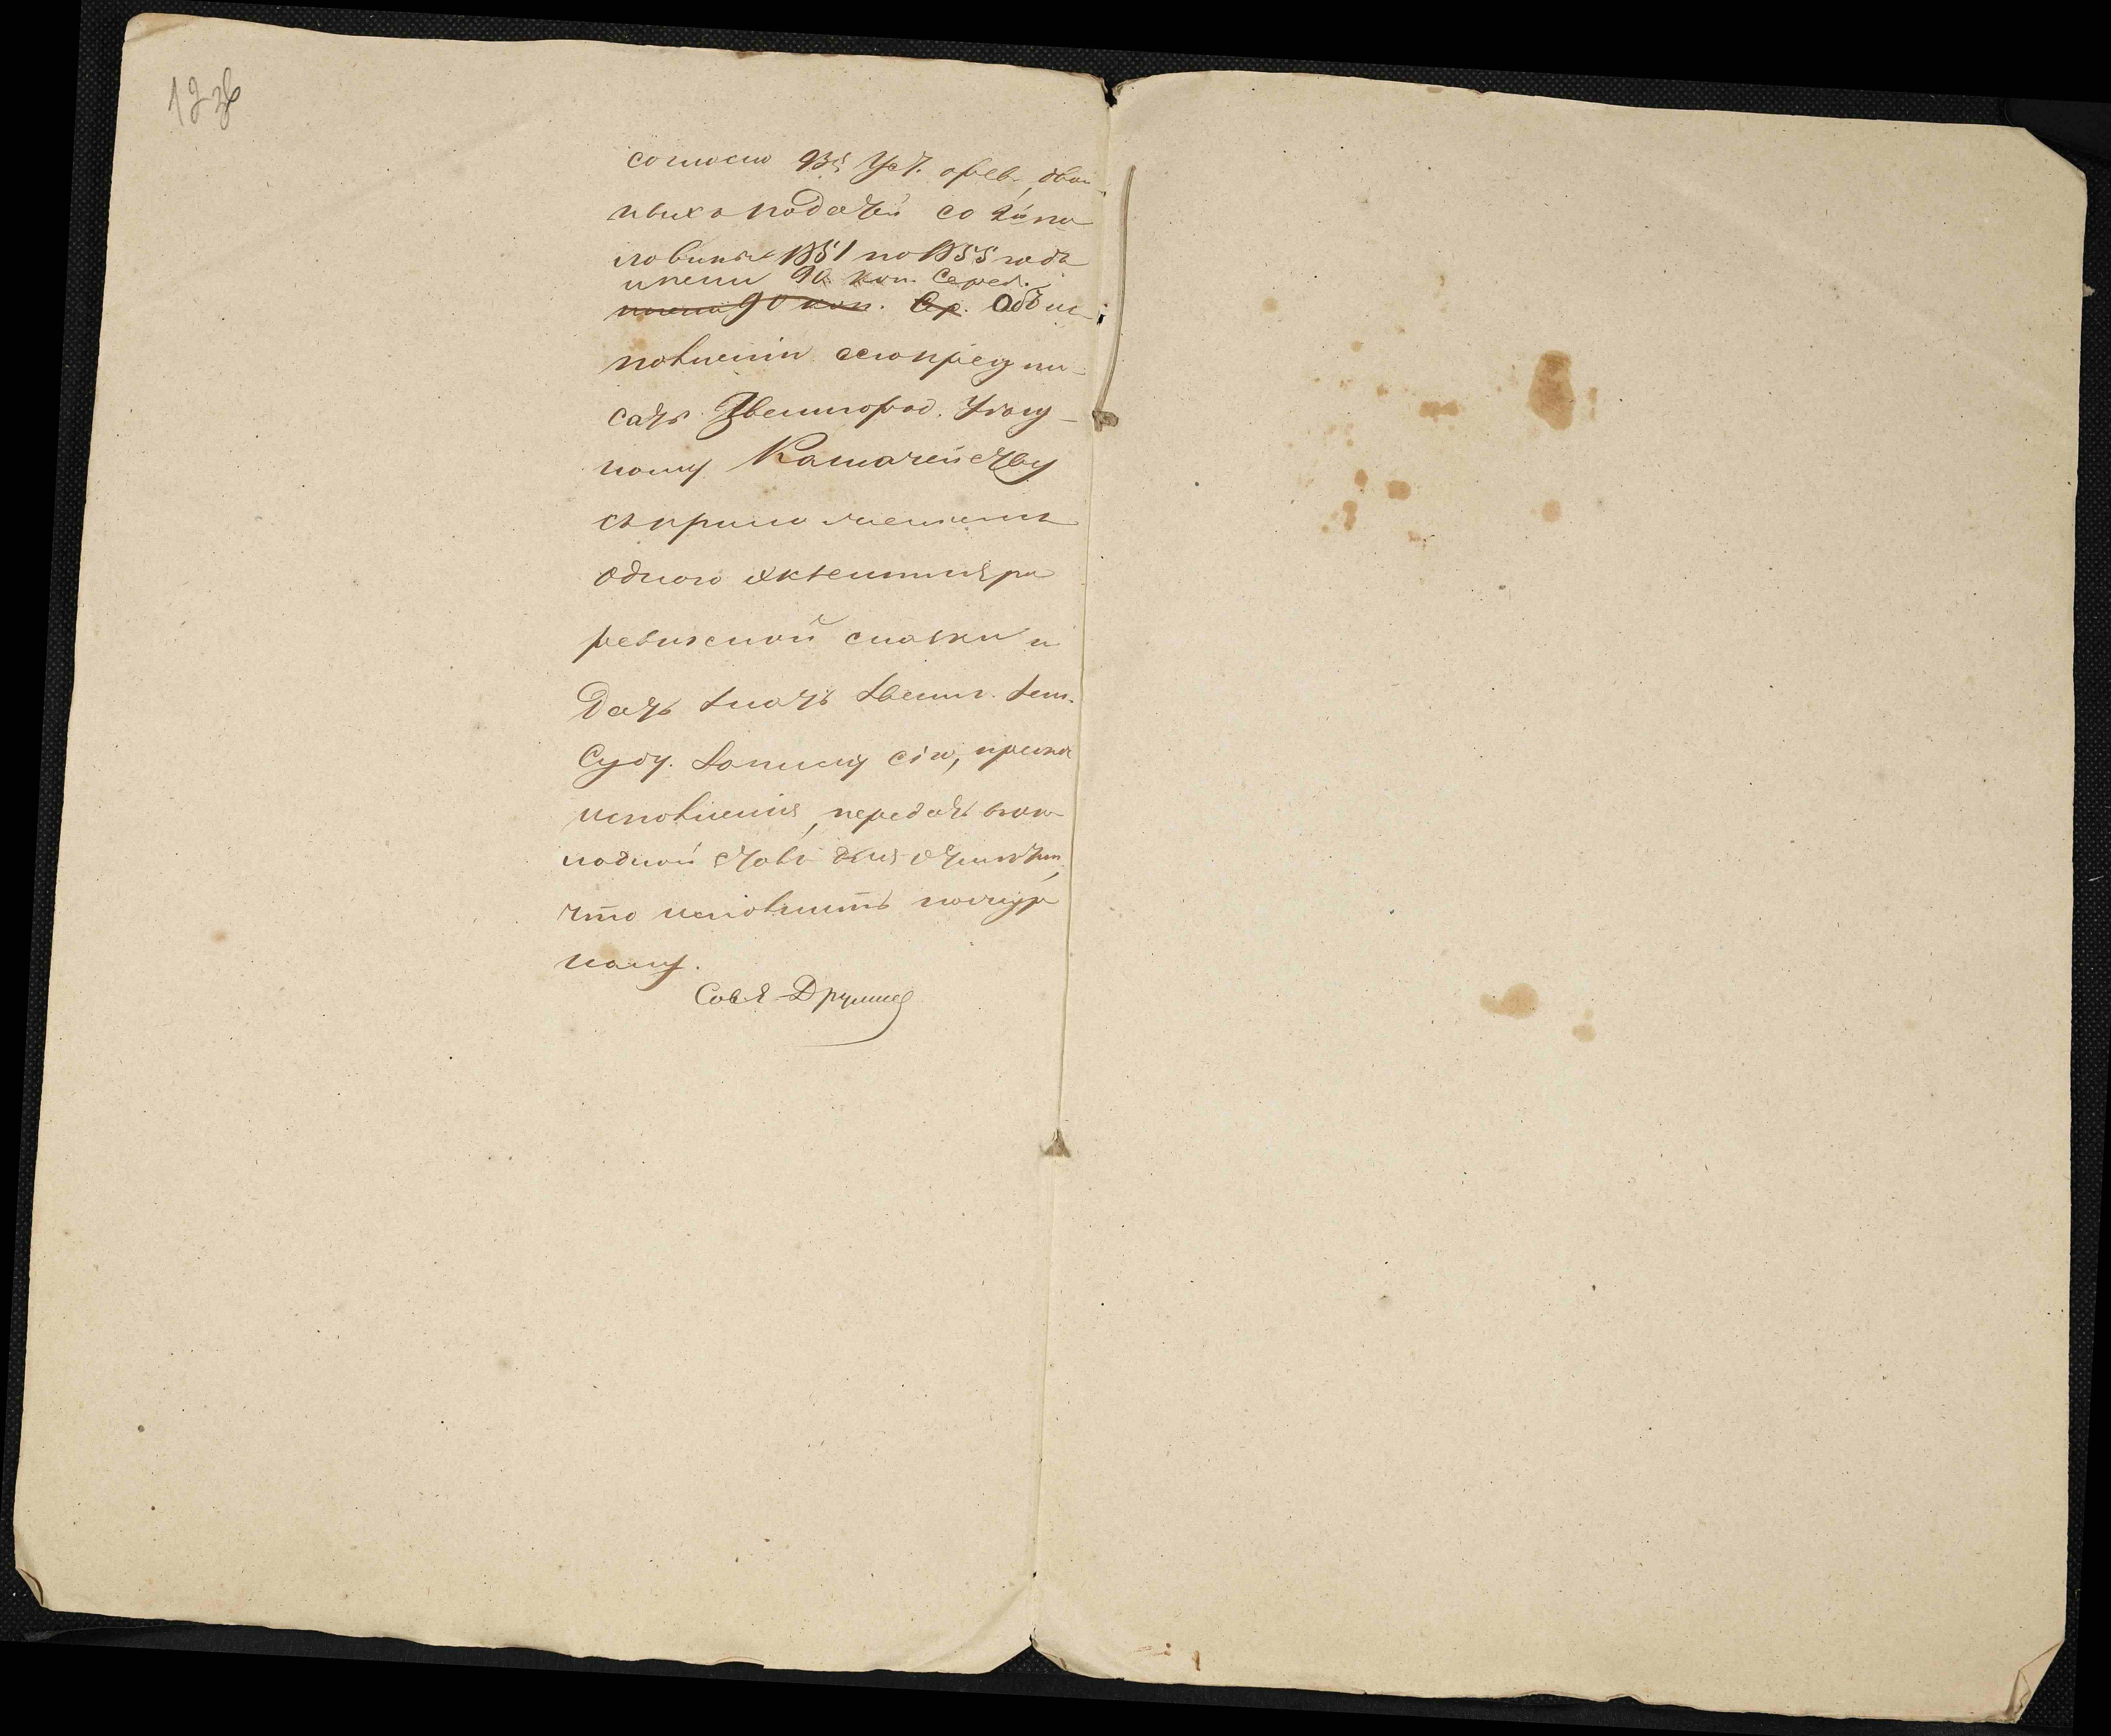 согласно 935 Уст. о рев., двой-
ныхъ податей со 2й по
ловины 1851 по 1855 года
и пени 90 коп. Сереб.
пени 90 коп. Ср. Объ ис
полненіи сего предпи-
сать Звенигород. Уѣзд-
ному Казначейству
съ приложеніемъ
одного экземпляра
ревизской сказки и
дать знать Звениг. Зем.
Суду. Записку сію, по
исполненія, передать въ ок-
ладной столъ для отмѣтки,
что исполнить по жур
налу.